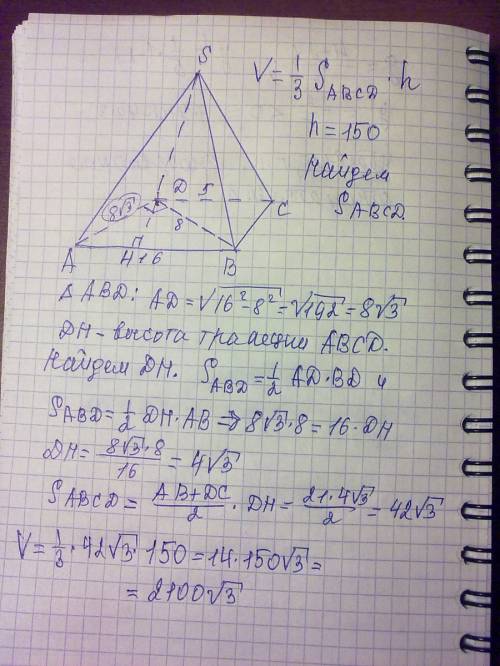 S
V = 1/3 S_ABCD · h
h = 150
Найдем
S_ABCD.
8√3 D 5 C
8
A H 16 B
Δ ABD: AD = √(16² - 8²) = √192 = 8√3
DH - высота трапеции ABCD.
Найдем DH. S_ABD = 1/2 AD · BD и
S_ABD = 1/2 DH · AB ⇒ 8√3 · 8 = 16 · DH
DH = (8√3 · 8)/16 = 4√3
S_ABCD = (AB + DC)/2 · DH = (21 · 4√3)/2 = 42√3
V = 1/3 · 42√3 · 150 = 14 · 150√3 =
= 2100√3